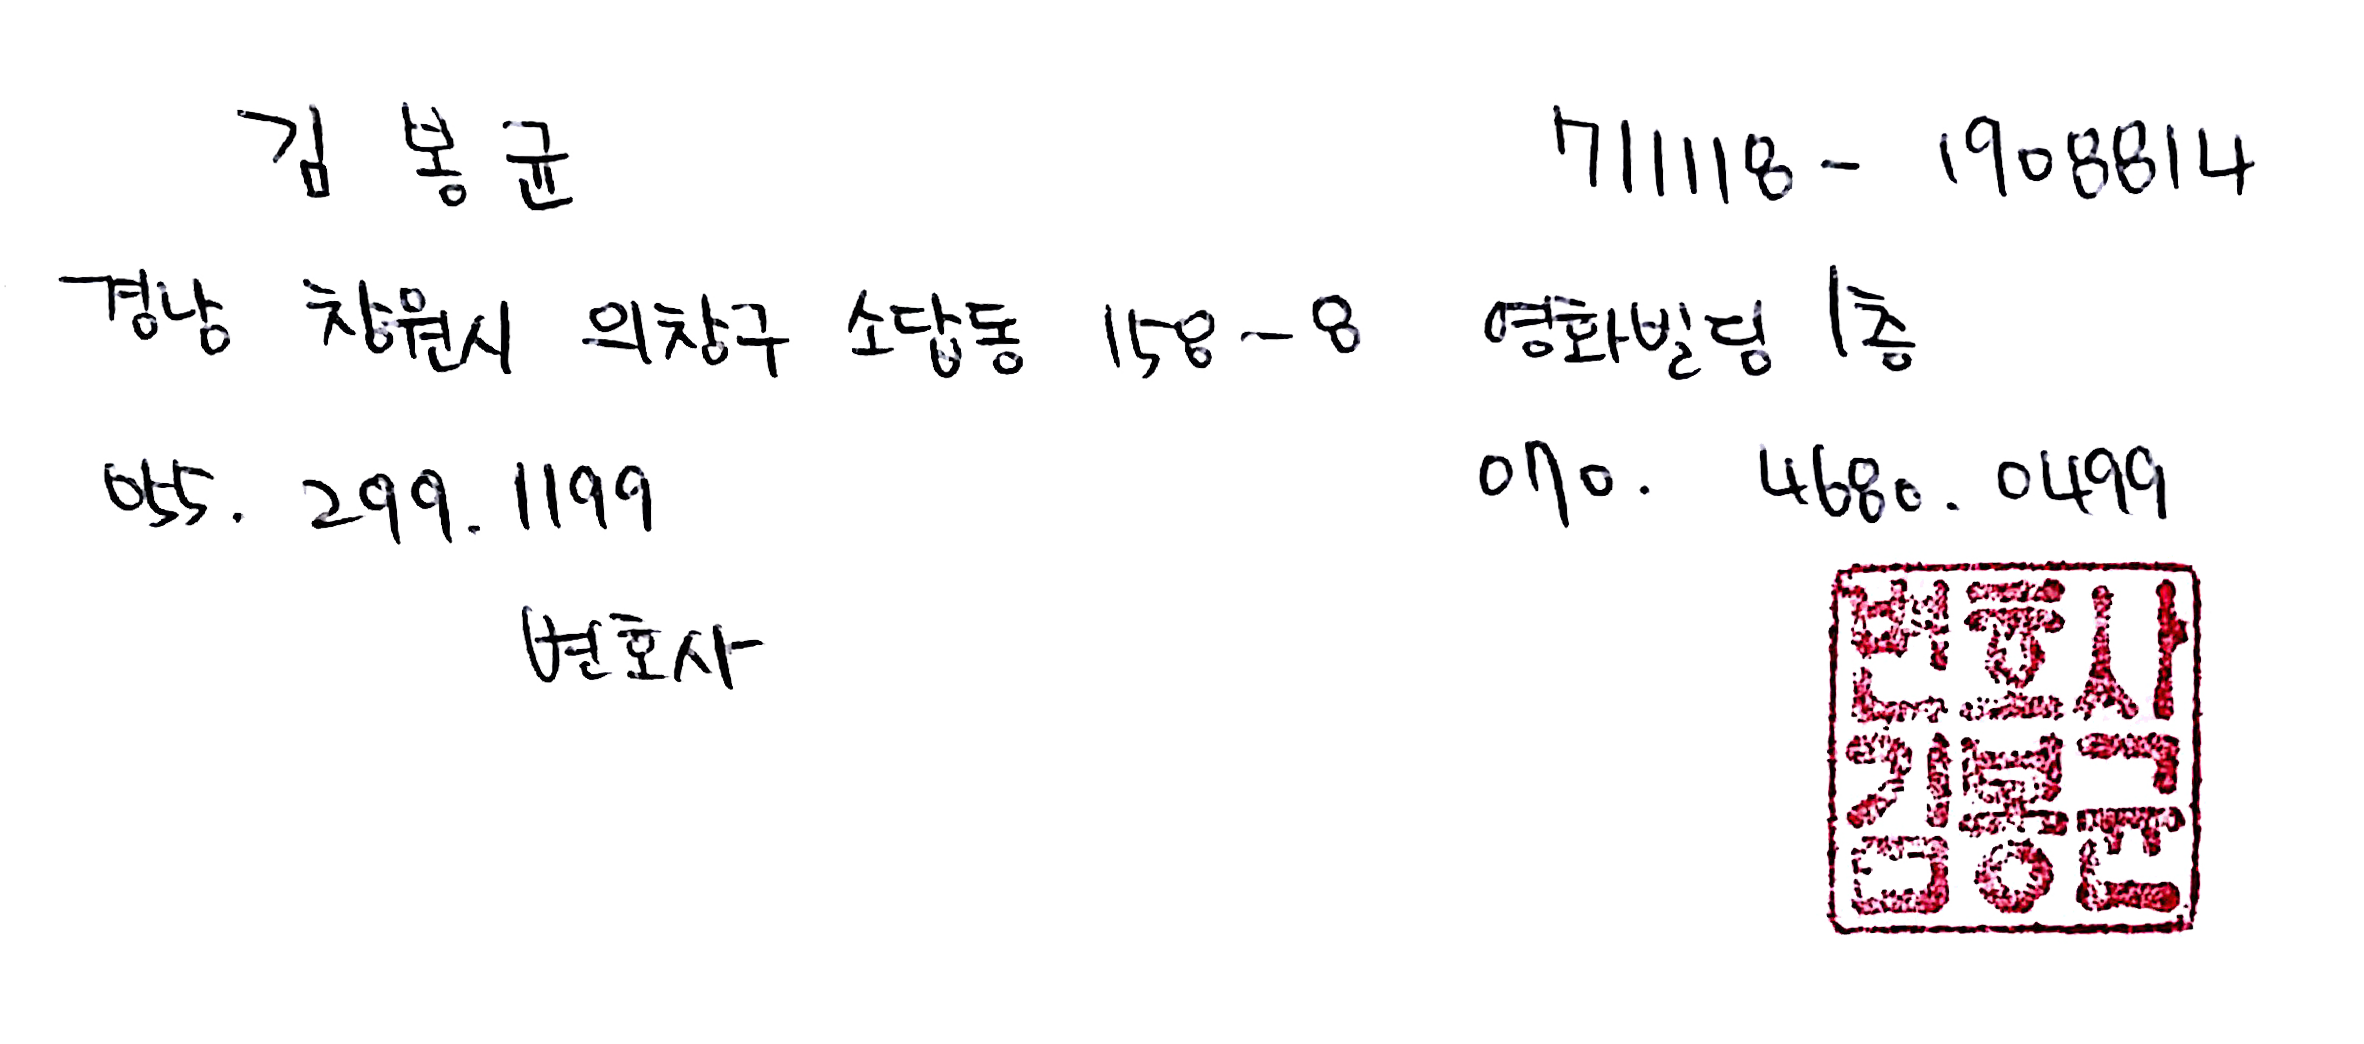 김봉균 711118-1908814
경남 창원시 의창구 소답동 158-8 영화빌딩 1층
055. 299. 1199 070. 4680. 0499
변호사
변호사
김봉균